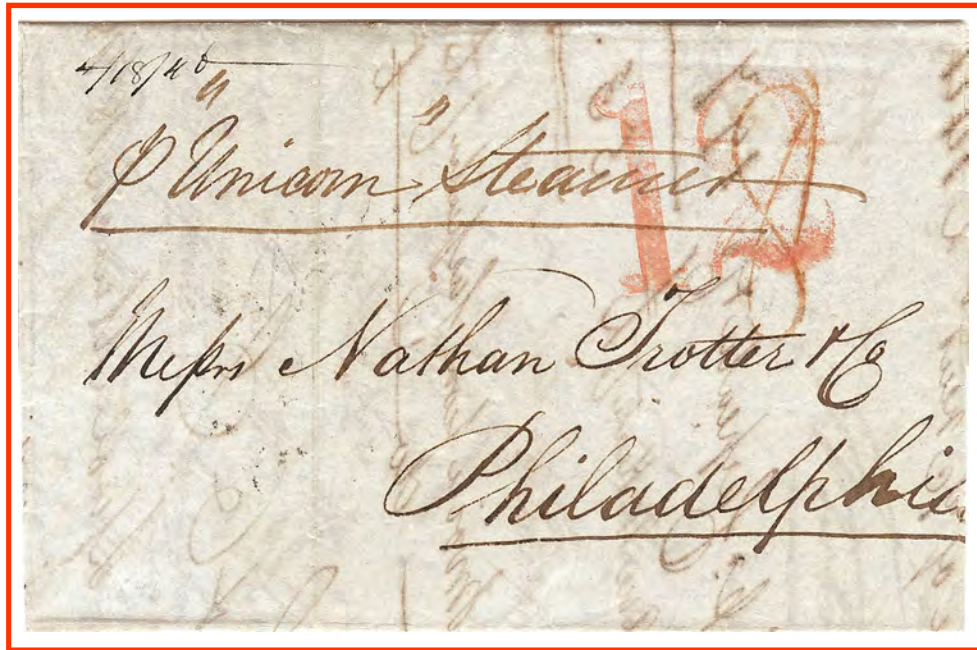 4/18/46
P "Unicorn" Steamer
12
Messrs Nathan Trotter & Co
Philadelphia